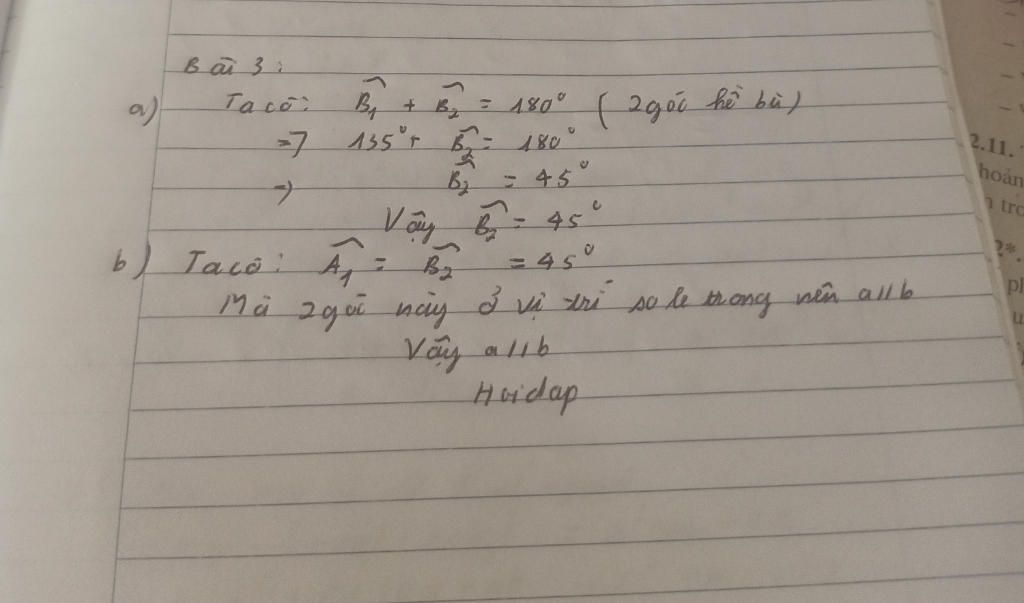 Bài 3:
a) Ta có: B̂₁ + B̂₂ = 180° ( 2 góc kề bù)
=> 135° + B̂₂ = 180°
=> B̂₂ = 45°
Vậy B̂₂ = 45°
b) Ta có: Â₁ = B̂₂ = 45°
Mà 2 góc này ở vị trí so le trong nên a//b
Vậy a//b
Hoidap
2.11.
hoản
n trc
2*.
pl
u